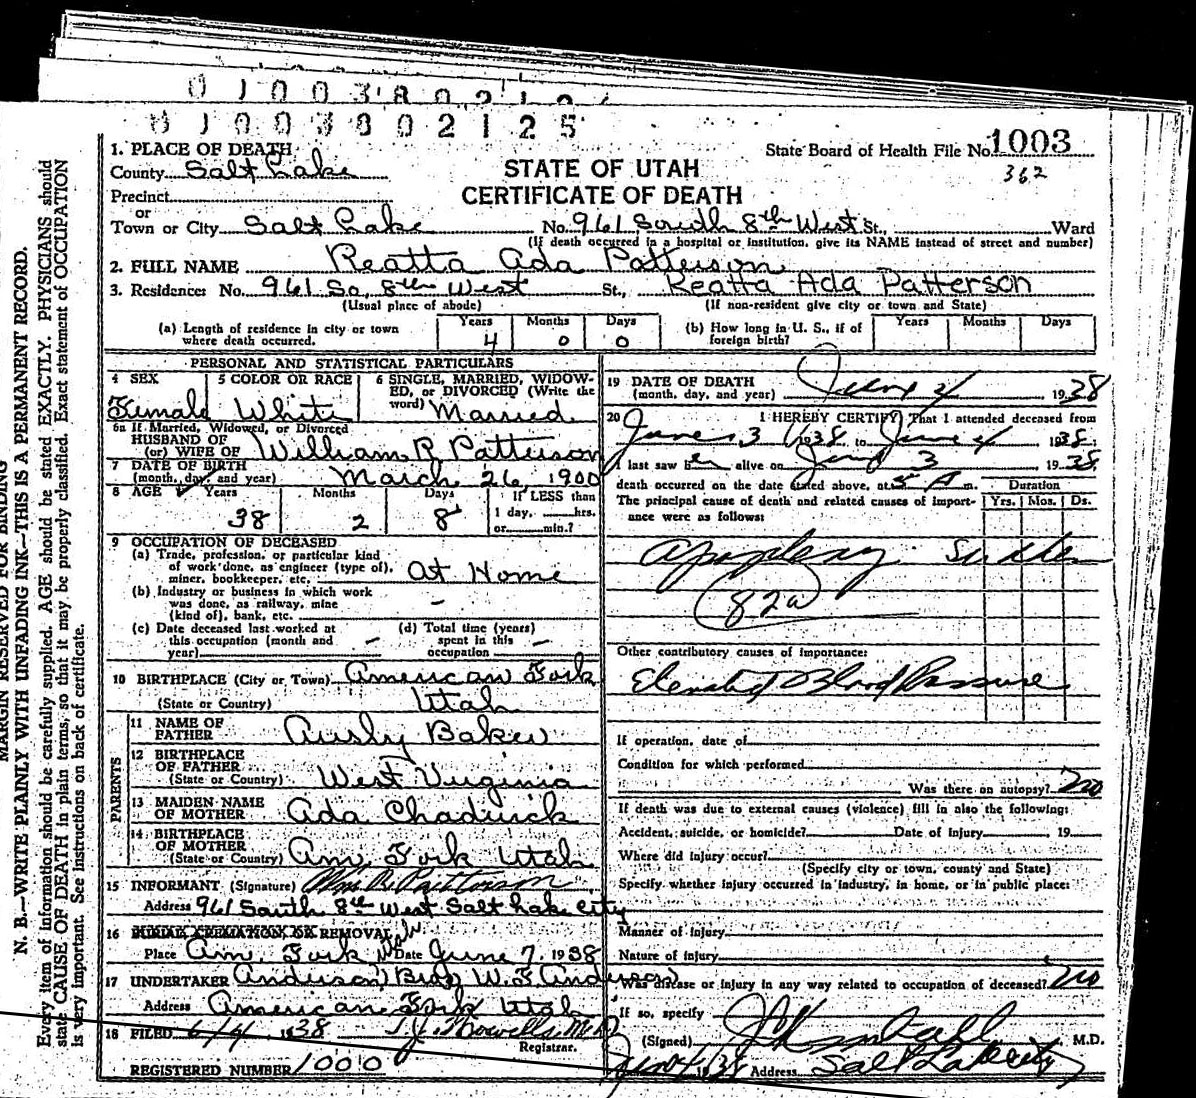 0 1 0 0 3 8 0 2 1 2
0 1 0 0 3 8 0 2 1 2 5
MARGIN RESERVED FOR BINDING
N. B.—WRITE PLAINLY WITH UNFADING INK—THIS IS A PERMANENT RECORD.
Every item of information should be carefully supplied. AGE should be stated EXACTLY. PHYSICIANS should
state CAUSE OF DEATH in plain terms, so that it may be properly classified. Exact statement of OCCUPATION
is very important. See instructions on back of certificate.
1. PLACE OF DEATH
State Board of Health File No. 1003
County Salt Lake
STATE OF UTAH
362
Precinct
CERTIFICATE OF DEATH
or
Town or City Salt Lake No. 961 South 8th West St., Ward
(If death occurred in a hospital or institution, give its NAME instead of street and number)
2. FULL NAME Reatta Ada Patterson
3. Residence: No. 961 So. 8th West St., Reatta Ada Patterson
(Usual place of abode) (If non-resident give city or town and State)
(a) Length of residence in city or town where death occurred. Years 4 Months 0 Days 0
(b) How long in U. S., if of foreign birth? Years Months Days
PERSONAL AND STATISTICAL PARTICULARS
4 SEX Female
5 COLOR OR RACE White
6 SINGLE, MARRIED, WIDOWED, or DIVORCED (Write the word) Married
6a If Married, Widowed, or Divorced
HUSBAND OF
(or) WIFE OF William R Patterson
7 DATE OF BIRTH
(month, day, and year) March 26, 1900
8 AGE Years 38 Months 2 Days 8
If LESS than
1 day, hrs.
or min.?
9 OCCUPATION OF DECEASED
(a) Trade, profession, or particular kind
of work done, as engineer (type of),
miner, bookkeeper, etc. At Home
(b) Industry or business in which work
was done, as railway, mine
(kind of), bank, etc. –
(c) Date deceased last worked at
this occupation (month and
year) –
(d) Total time (years)
spent in this
occupation –
10 BIRTHPLACE (City or Town) American Fork
(State or Country) Utah
PARENTS
11 NAME OF
FATHER Baker
12 BIRTHPLACE
OF FATHER
(State or Country) West Virginia
13 MAIDEN NAME
OF MOTHER Ada Chadwick
14 BIRTHPLACE
OF MOTHER
(State or Country) Am. Fork Utah
15 INFORMANT (Signature) Wm R Patterson
Address 961 South 8th West Salt Lake City
16 BURIAL, CREMATION, OR REMOVAL
Place Am. Fork Utah Date June 7, 1938
17 UNDERTAKER Anderson Bros W. F. Anderson
Address American Fork Utah
18 FILED 6/4, 1938 Howells M.D.
Registrar.
REGISTERED NUMBER 1000
19 DATE OF DEATH
(month, day, and year) June 4 1938
20 I HEREBY CERTIFY, That I attended deceased from
June 3 1938 to June 4 1938;
I last saw her alive on June 3 1938
death occurred on the date stated above, at 5 A m.
Duration
The principal cause of death and related causes of importance were as follows:
Yrs. Mos. Ds.
Apoplexy Sudden
82a
Other contributory causes of importance:
Elevated Blood Pressure
If operation, date of
Condition for which performed
Was there an autopsy? no
If death was due to external causes (violence) fill in also the following:
Accident, suicide, or homicide? Date of injury 19
Where did injury occur?
(Specify city or town, county and State)
Specify whether injury occurred in industry, in home, or in public place:
Manner of injury
Nature of injury
Was disease or injury in any way related to occupation of deceased? no
If so, specify
(Signed) M.D.
June 4 1938 Address Salt Lake City